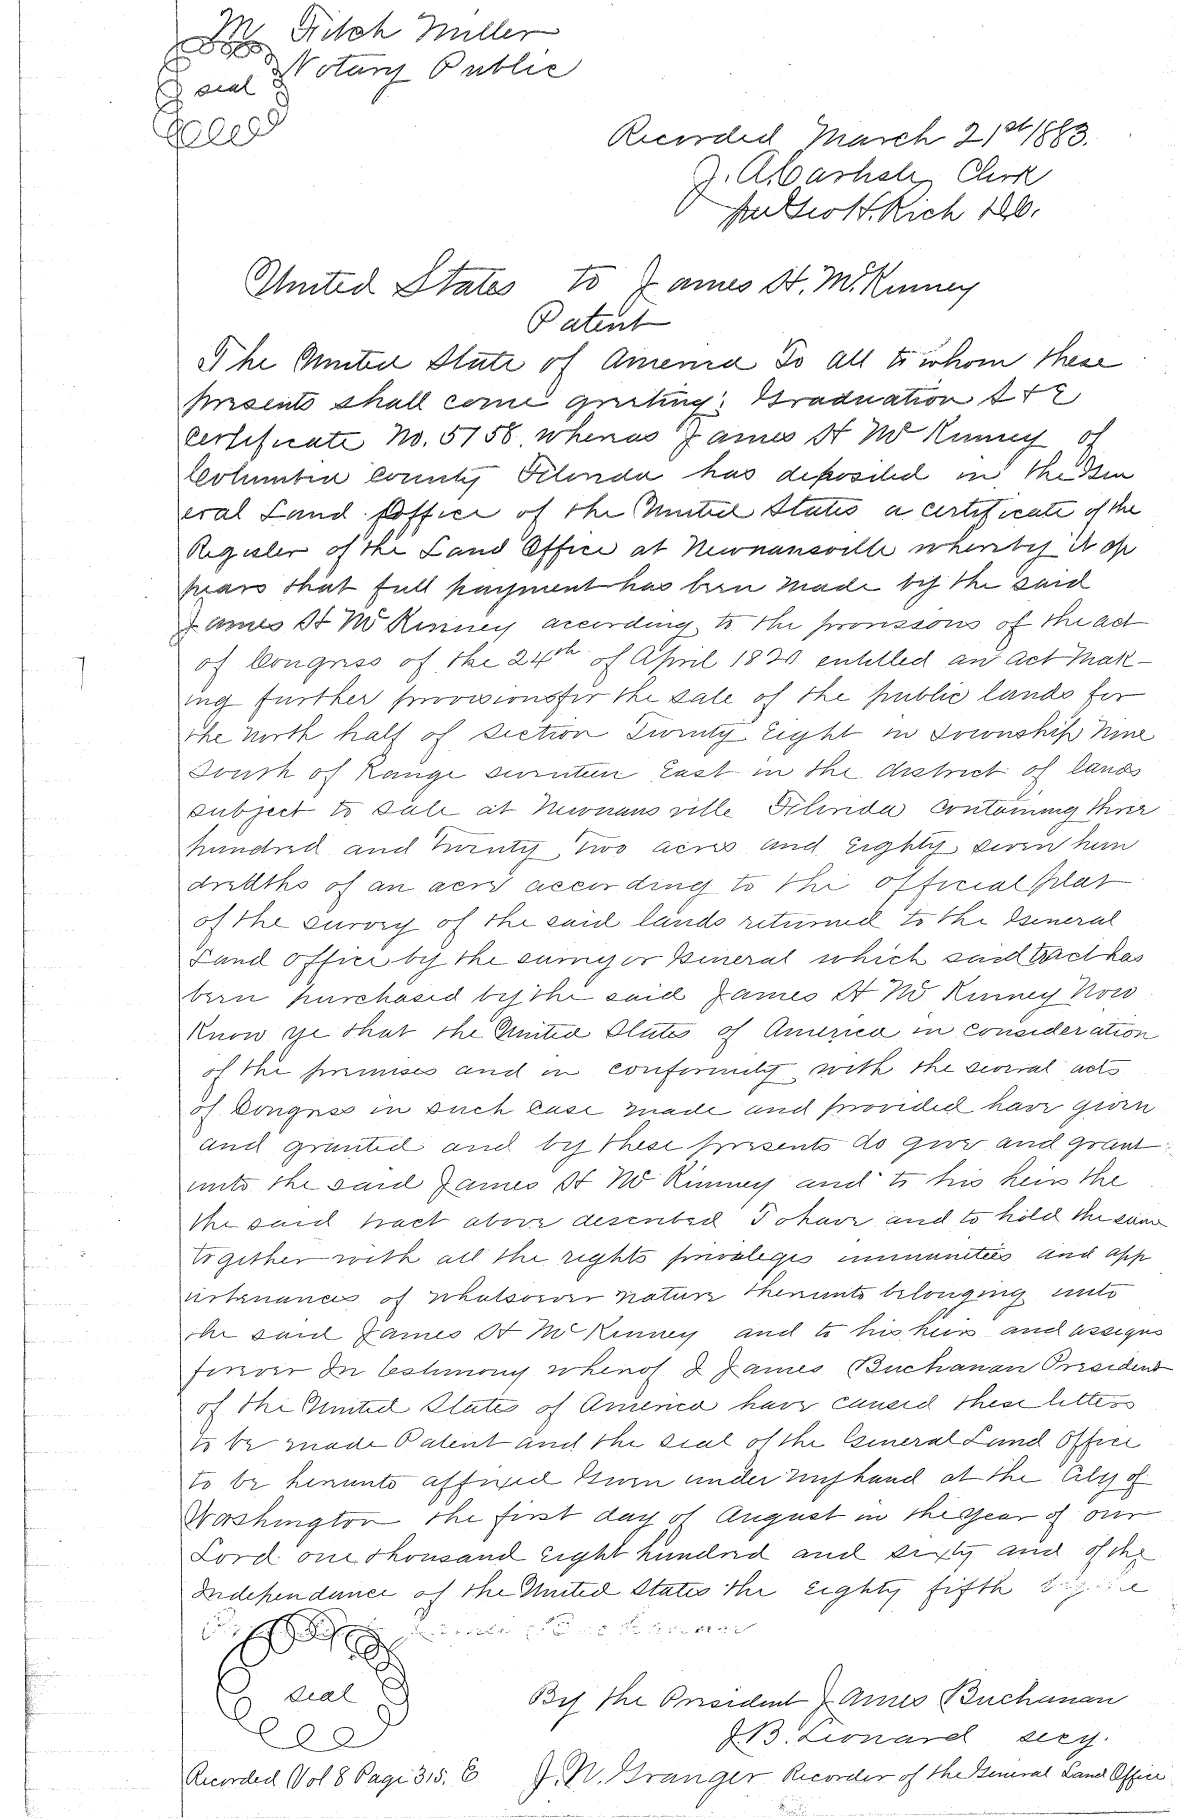 M Fitch Miller
seal Notary Public
Recorded March 21st 1883.
J. A. Carlisle Clerk
per Geo H. Rich D.C.
United States to James H. McKinney
Patent
The United State of America To all to whom these
presents shall come greeting: Graduation
Certificate No. 5158. whereas James H McKinney of
Columbia County Florida has deposited in the Gen
eral Land Office of the United States a certificate of the
Register of the Land Office at Newnansville whereby it ap
pears that full payment has been made by the said
James H McKinney according to the provissons of the act
of Congress of the 24th of April 1820 entitled an act Mak-
ing further provisions for the sale of the public lands for
the North half of Section Twenty Eight in Township Nine
South of Range seventeen East in the district of lands
subject to sale at Newnansville Florida containing three
hundred and Twenty Two acres and Eighty seven hun
dredths of an acre according to the official plat
of the survey of the said lands returned to the General
Land Office by the surveyor General which said tract has
been purchased by the said James H McKinney Now
Know ye that the United States of America in consideration
of the premises and in conformity with the several acts
of Congress in such case made and provided have given
and granted and by these presents do give and grant
unto the said James H McKinney and to his heirs the
the said tract above described To have and to hold the same
together with all the rights privileges immunities and app
urtenances of whatsoever nature thereunto belonging unto
the said James H McKinney and to his heirs and assigns
forever In testimony whereof I James Buchanan President
of the United States of America have caused these letters
to be made Patent and the seal of the General Land Office
to be hereunto affixed Given under my hand at the City of
Washington the first day of August in the year of our
Lord one thousand eight hundred and sixty and of the
Independance of the United States the Eighty fifth by the
seal
By the President James Buchanan
J. B. Leonard secy.
Recorded Vol 8 Page 315. E J. N. Granger Recorder of the General Land Office